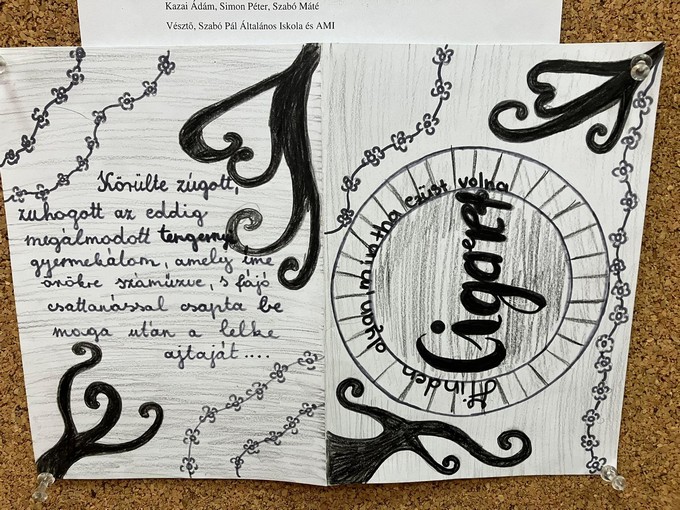 Kazai Ádám, Simon Péter, Szabó Máté
Vésztő, Szabó Pál Általános Iskola és AMI
Körülte zúgott,
zuhogott az eddig
megálmodott tengernyi
gyermekálom, amely íme
örökre száműzve, s fájó
csattanással csapta be
maga után a lelke
ajtaját....
Minden olyan mintha ezüst volna
Cigaret